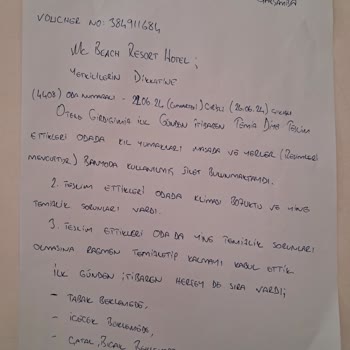 ÇARŞAMBA
VOUCHER NO: 384911684
MC BEACH RESORT HOTEL;
YETKİLİLERİN DİKKATİNE
(4408) ODA NUMARASI - 22.06.24 (CUMARTESİ) GİRİŞ (26.06.24) ÇIKIŞ
OTELE GİRDİĞİMİZ İLK GÜNDEN İTİBAREN TEMİZ DİYE TESLİM
ETTİKLERİ ODADA KIL YUMAKLARI MASADA VE YERLER (RESİMLERİ
MEVCUTUR.) BANYODA KULLANILMIŞ JİLET BULUNMAKTAYDI.
2. TESLİM ETTİKLERİ ODADA KLİMASI BOZUKTU VE YİNE
TEMİZLİK SORUNLARI VARDI.
3. TESLİM ETTİKLERİ ODA DA YİNE TEMİZLİK SORUNLARI
OLMASINA RAĞMEN TEMİZLETİP KALMAYI KABUL ETTİK
İLK GÜNDEN İTİBAREN HERŞEY DE SIRA VARDI;
- TABAK BEKLEMEDE,
- İÇECEK BEKLEMEDE,
- ÇATAL, BIÇAK